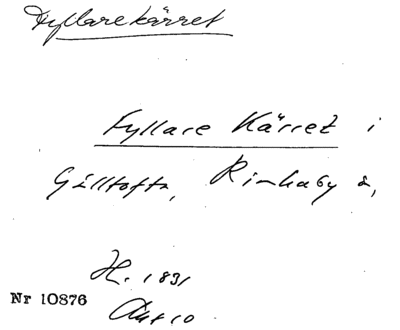 Fyllarekärret
Fyllare Kärret i
Gälltofta, Rinkaby s,
H. 1831
Nr 10876
Akt 10